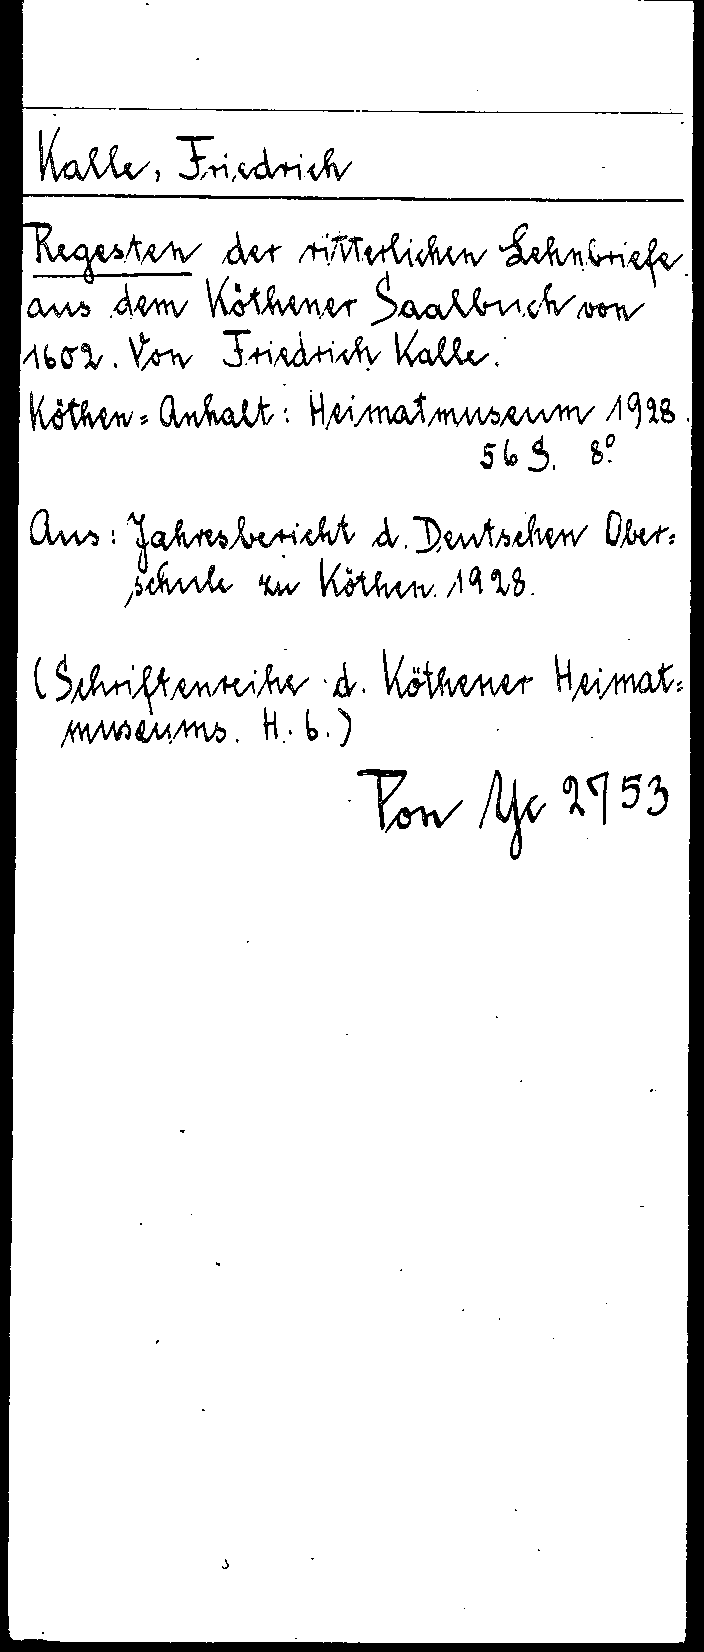 Kalle, Friedrich
Regesten der ritterlichen Lehnbriefe
aus dem Köthener Saalbuch von
1602. Von Friedrich Kalle.
Köthen=Anhalt: Heimatmuseum 1928.
56 S. 8°.
Aus: Jahresbericht d. Deutschen Ober=
schule zu Köthen. 1928.
(Schriftenreihe d. Köthener Heimat=
museums. H. 6.)
Pon Yc 2753